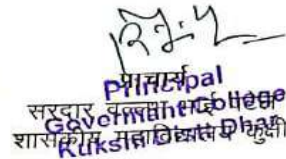 प्राचार्य
Principal
सरदार वल्लभ भाई पटेल
College
शासकीय महाविद्यालय कुक्षी
Kukshi Distt Dhar